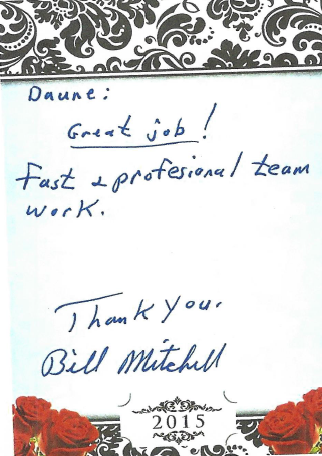 Daune:
Great job!
Fast & profesional team
work.
Thank you.
Bill Mitchell
2015